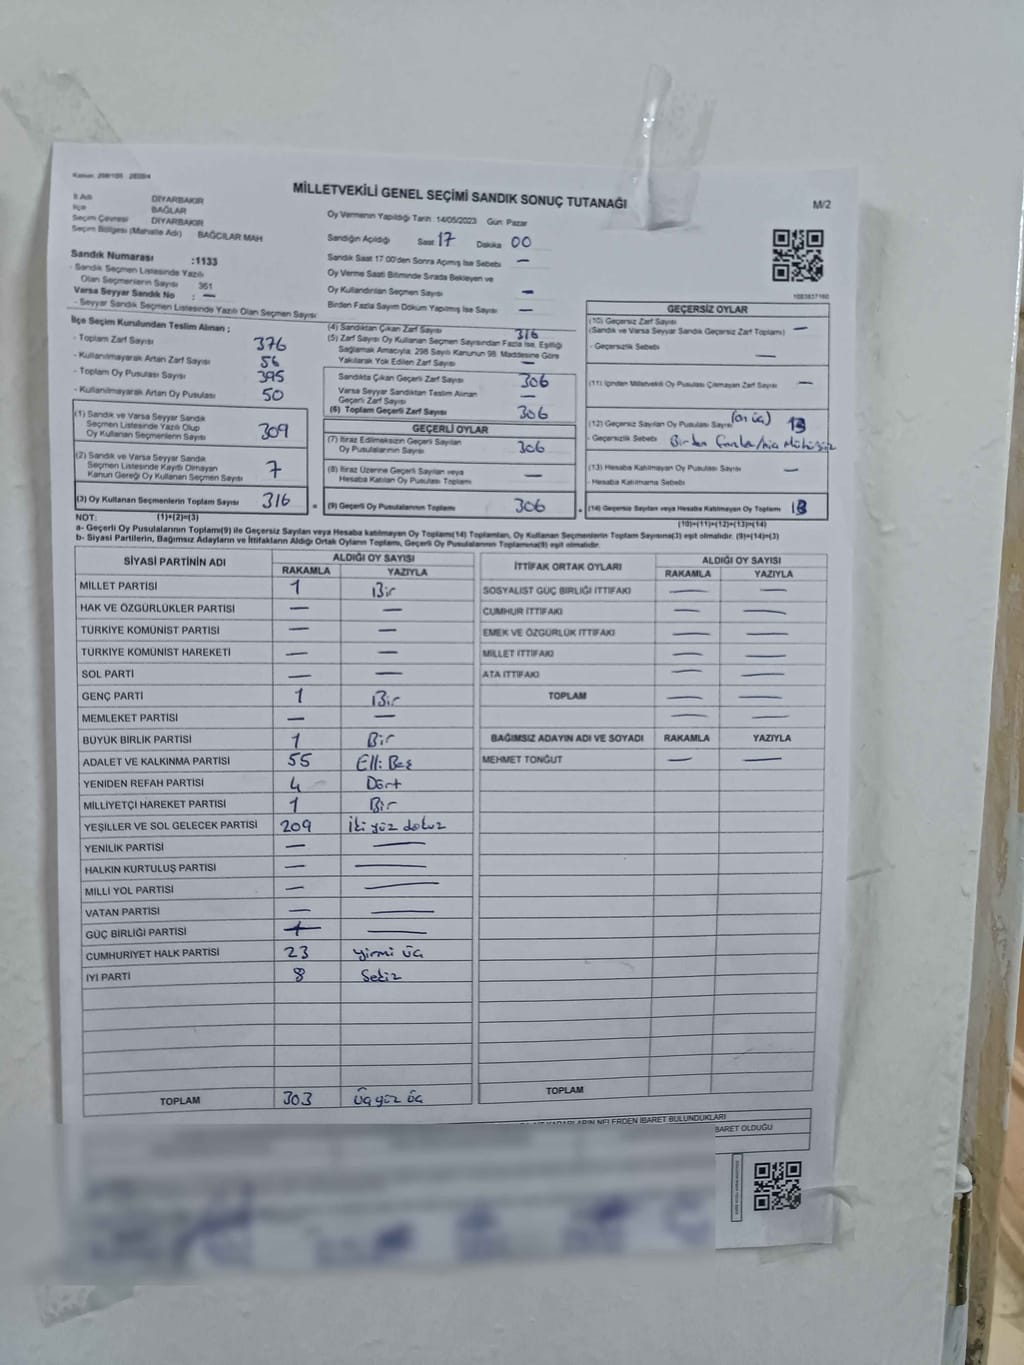 MİLLETVEKİLİ GENEL SEÇİMİ SANDIK SONUÇ TUTANAĞI
M/2
İl Adı DİYARBAKIR
İlçe BAĞLAR
Seçim Çevresi DİYARBAKIR
Seçim Bölgesi (Mahalle Adı) BAĞCILAR MAH
Sandık Numarası :1133
- Sandık Seçmen Listesinde Yazılı
Olan Seçmenlerin Sayısı 361
Varsa Seyyar Sandık No : —
- Seyyar Sandık Seçmen Listesinde Yazılı Olan Seçmen Sayısı
Oy Vermenin Yapıldığı Tarih 14/05/2023 Gün: Pazar
Sandığın Açıldığı Saat 17 Dakika 00
Sandık Saat 17:00'den Sonra Açılmış İse Sebebi —
Oy Verme Saati Bitiminde Sırada Bekleyen ve
Oy Kullandırılan Seçmen Sayısı —
Birden Fazla Sayım Döküm Yapılmış İse Sayısı —
İlçe Seçim Kurulundan Teslim Alınan ;
- Toplam Zarf Sayısı 376
- Kullanılmayarak Artan Zarf Sayısı 56
- Toplam Oy Pusulası Sayısı 395
- Kullanılmayarak Artan Oy Pusulası 50
(1) Sandık ve Varsa Seyyar Sandık
Seçmen Listesinde Yazılı Olup
Oy Kullanan Seçmenlerin Sayısı 309
(2) Sandık ve Varsa Seyyar Sandık
Seçmen Listesinde Kayıtlı Olmayan
Kanun Gereği Oy Kullanan Seçmen Sayısı 7
(3) Oy Kullanan Seçmenlerin Toplam Sayısı 316
(4) Sandıktan Çıkan Zarf Sayısı 316
(5) Zarf Sayısı Oy Kullanan Seçmen Sayısından Fazla İse, Eşitliği
Sağlamak Amacıyla, 298 Sayılı Kanunun 98. Maddesine Göre
Yakılarak Yok Edilen Zarf Sayısı —
Sandıkta Çıkan Geçerli Zarf Sayısı 306
Varsa Seyyar Sandıktan Teslim Alınan
Geçerli Zarf Sayısı —
(6) Toplam Geçerli Zarf Sayısı 306
GEÇERLİ OYLAR
(7) İtiraz Edilmeksizin Geçerli Sayılan
Oy Pusulalarının Sayısı 306
(8) İtiraz Üzerine Geçerli Sayılan veya
Hesaba Katılan Oy Pusulası Toplamı —
(9) Geçerli Oy Pusulalarının Toplamı 306
GEÇERSİZ OYLAR
(10) Geçersiz Zarf Sayısı
(Sandık ve Varsa Seyyar Sandık Geçersiz Zarf Toplamı) —
- Geçersizlik Sebebi —
(11) İçinden Milletvekili Oy Pusulası Çıkmayan Zarf Sayısı —
(12) Geçersiz Sayılan Oy Pusulası Sayısı (on üç) 13
- Geçersizlik Sebebi Birden Fazla/hiç Mühürsüz
(13) Hesaba Katılmayan Oy Pusulası Sayısı —
- Hesaba Katılmama Sebebi
(14) Geçersiz Sayılan veya Hesaba Katılmayan Oy Toplamı 13
NOT: (1)+(2)=(3)
(10)+(11)+(12)+(13)=(14)
a- Geçerli Oy Pusulalarının Toplamı(9) ile Geçersiz Sayılan veya Hesaba katılmayan Oy Toplamı(14) Toplamları, Oy Kullanan Seçmenlerin Toplam Sayısına(3) eşit olmalıdır. (9)+(14)=(3)
b- Siyasi Partilerin, Bağımsız Adayların ve İttifakların Aldığı Ortak Oyların Toplamı, Geçerli Oy Pusulalarının Toplamına(9) eşit olmalıdır.
SİYASİ PARTİNİN ADI ALDIĞI OY SAYISI
RAKAMLA YAZIYLA
MİLLET PARTİSİ 1 Bir
HAK VE ÖZGÜRLÜKLER PARTİSİ — —
TÜRKİYE KOMÜNİST PARTİSİ — —
TÜRKİYE KOMÜNİST HAREKETİ — —
SOL PARTİ — —
GENÇ PARTİ 1 Bir
MEMLEKET PARTİSİ — —
BÜYÜK BİRLİK PARTİSİ 1 Bir
ADALET VE KALKINMA PARTİSİ 55 Elli Beş
YENİDEN REFAH PARTİSİ 4 Dört
MİLLİYETÇİ HAREKET PARTİSİ 1 Bir
YEŞİLLER VE SOL GELECEK PARTİSİ 209 İki yüz dokuz
YENİLİK PARTİSİ — —
HALKIN KURTULUŞ PARTİSİ — —
MİLLİ YOL PARTİSİ — —
VATAN PARTİSİ — —
GÜÇ BİRLİĞİ PARTİSİ — —
CUMHURİYET HALK PARTİSİ 23 yirmi üç
İYİ PARTİ 8 Sekiz
TOPLAM 303 Üç yüz üç
İTTİFAK ORTAK OYLARI ALDIĞI OY SAYISI
RAKAMLA YAZIYLA
SOSYALİST GÜÇ BİRLİĞİ İTTİFAKI — —
CUMHUR İTTİFAKI — —
EMEK VE ÖZGÜRLÜK İTTİFAKI — —
MİLLET İTTİFAKI — —
ATA İTTİFAKI — —
TOPLAM — —
— —
BAĞIMSIZ ADAYIN ADI VE SOYADI RAKAMLA YAZIYLA
MEHMET TONĞUT — —
TOPLAM
KARARLARIN NELERDEN İBARET BULUNDUKLARI
İBARET OLDUĞU